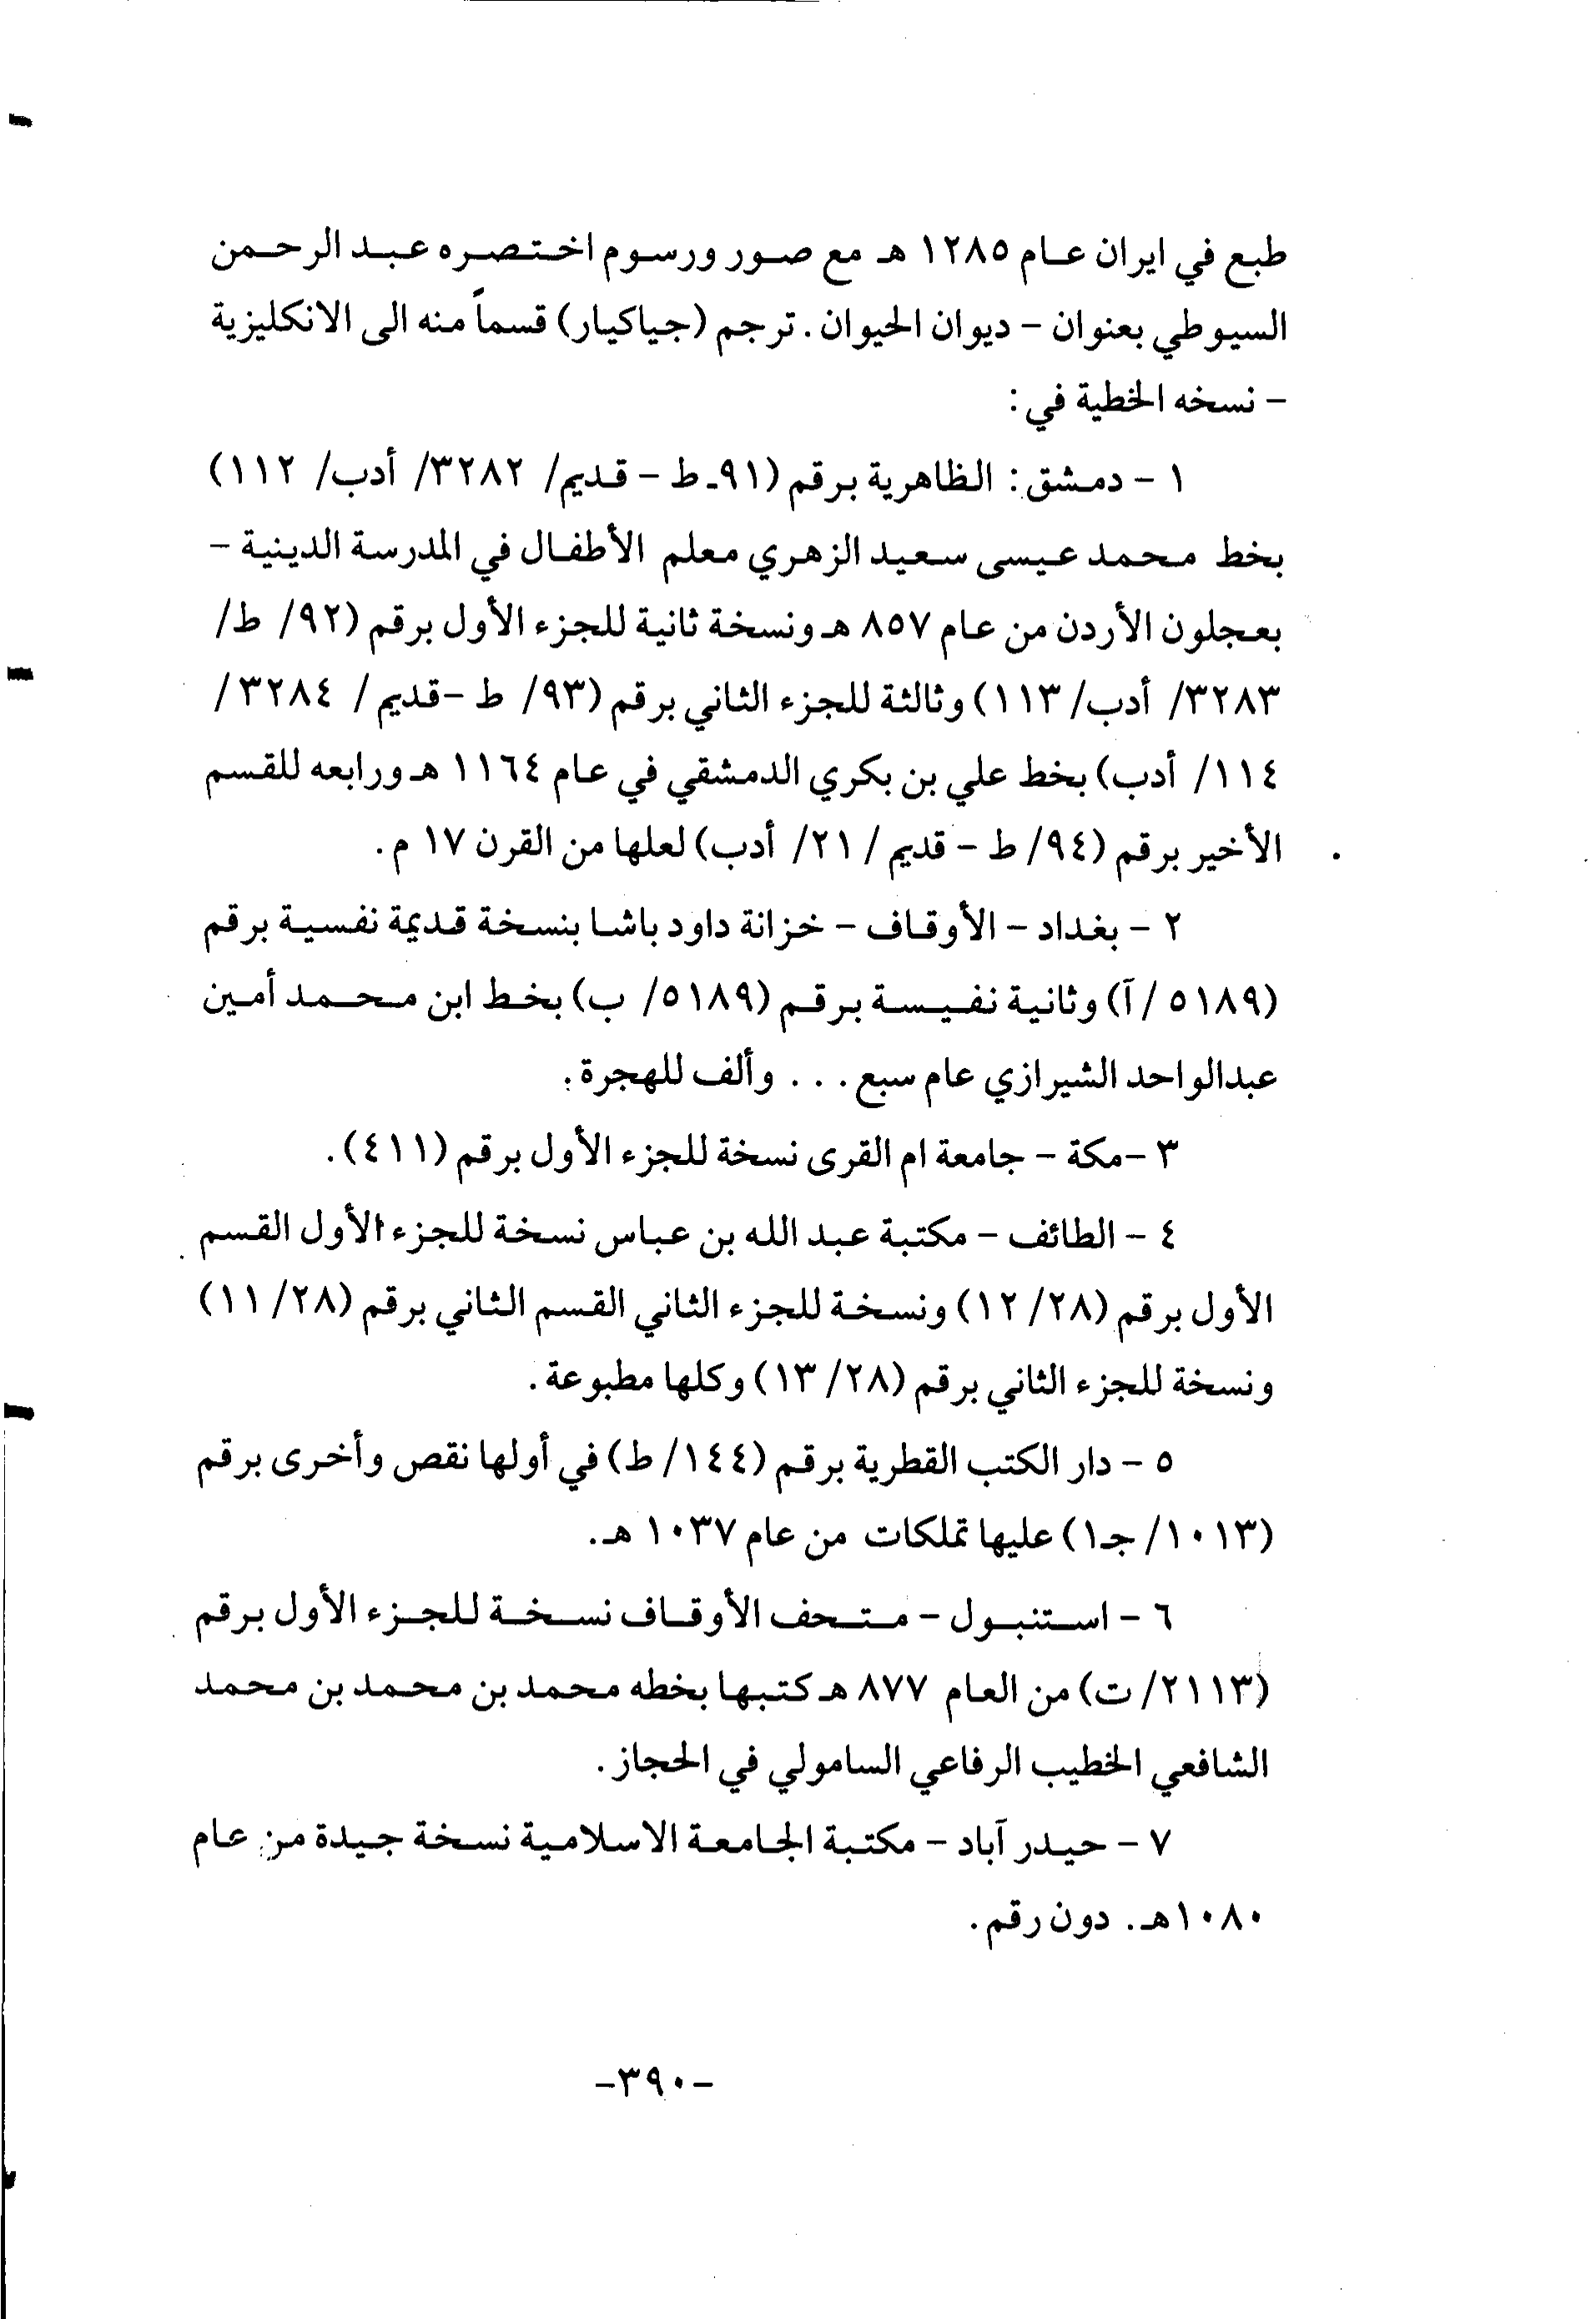 طبع في ايران عام ١٢٨٥ هـ مع صور ورسوم اختصره عبد الرحمن
السيوطي بعنوان - ديوان الحيوان. ترجم (جياكيار) قسماً منه الى الانكليزية
- نسخه الخطية في:
١ - دمشق: الظاهرية برقم (٩١ـ ط - قديم/ ٣٢٨٢/ أدب/ ١١٢)
بخط محمد عيسى سعيد الزهري معلم الأطفال في المدرسة الدينية -
بعجلون الأردن من عام ٨٥٧ هـ ونسخة ثانية للجزء الأول برقم (٩٢/ ط/
٣٢٨٣/ أدب/ ١١٣) وثالثة للجزء الثاني برقم (٩٣/ ط -قديم/ ٣٢٨٤/
١١٤/ أدب) بخط علي بن بكري الدمشقي في عام ١١٦٤ هـ ورابعه للقسم
الأخير برقم (٩٤/ ط - قديم/ ٢١/ أدب) لعلها من القرن ١٧ م.
٢ - بغداد - الأوقاف - خزانة داود باشا بنسخة قديمة نفسية برقم
(٥١٨٩/ آ) وثانية نفيسة برقم (٥١٨٩/ ب) بخط ابن محمد أمين
عبدالواحد الشيرازي عام سبع... وألف للهجرة.
٣ -مكة - جامعة ام القرى نسخة للجزء الأول برقم (٤١١).
٤ - الطائف - مكتبة عبد الله بن عباس نسخة للجزء الأول القسم
الأول برقم (٢٨/ ١٢) ونسخة للجزء الثاني القسم الثاني برقم (٢٨/ ١١)
ونسخة للجزء الثاني برقم (٢٨/ ١٣) وكلها مطبوعة.
٥ - دار الكتب القطرية برقم (١٤٤/ ط) في أولها نقص وأخرى برقم
(١٠١٣/ جـ١) عليها تملكات من عام ١٠٣٧ هـ.
٦ - استنبول - متحف الأوقاف نسخة للجزء الأول برقم
(٢١١٣/ ت) من العام ٨٧٧ هـ كتبها بخطه محمد بن محمد بن محمد
الشافعي الخطيب الرفاعي السامولي في الحجاز.
٧ - حيدر آباد - مكتبة الجامعة الاسلامية نسخة جيدة من عام
١٠٨٠هـ. دون رقم.
-٣٩٠-